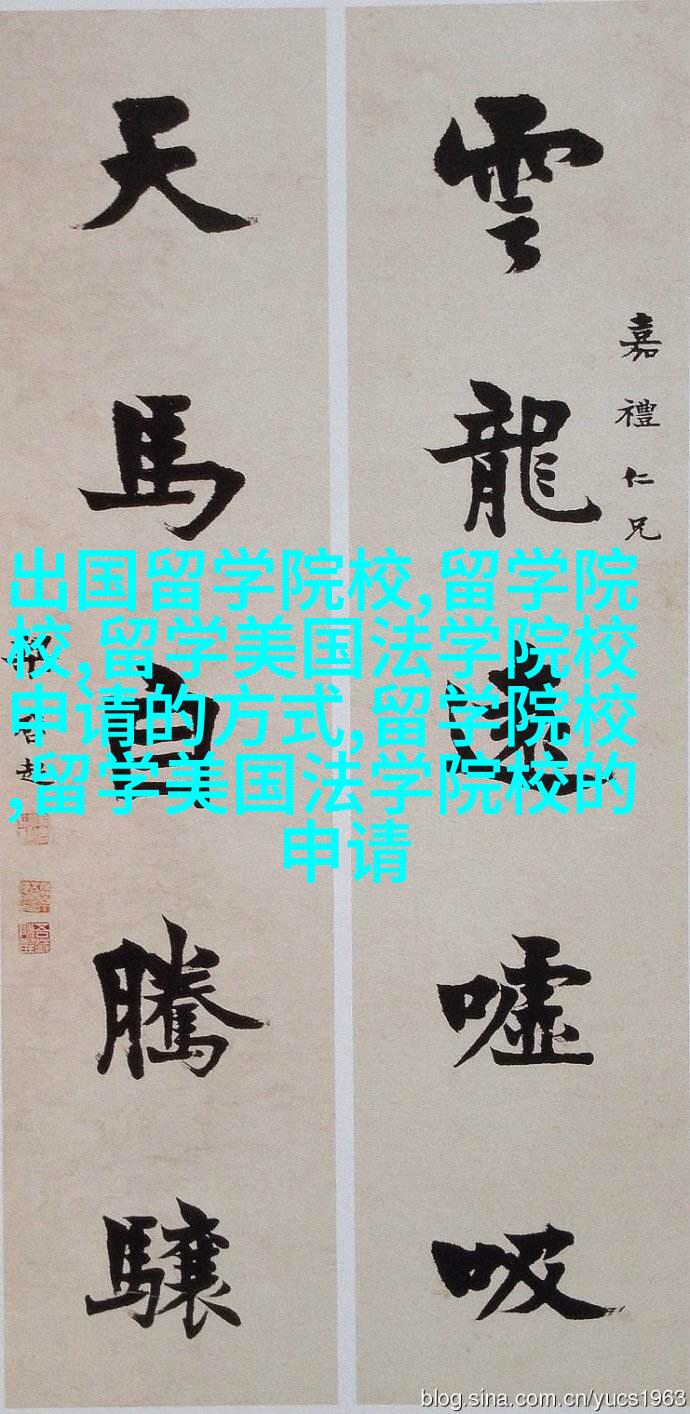 雲龍遠噓吸
嘉禮仁兄
天馬自騰驤
出国留学院校,留学院
校,留学美国法学院校
申请的方式,留学院校
,留学美国法学院校的
申请
blog.sina.com.cn/yucs1963